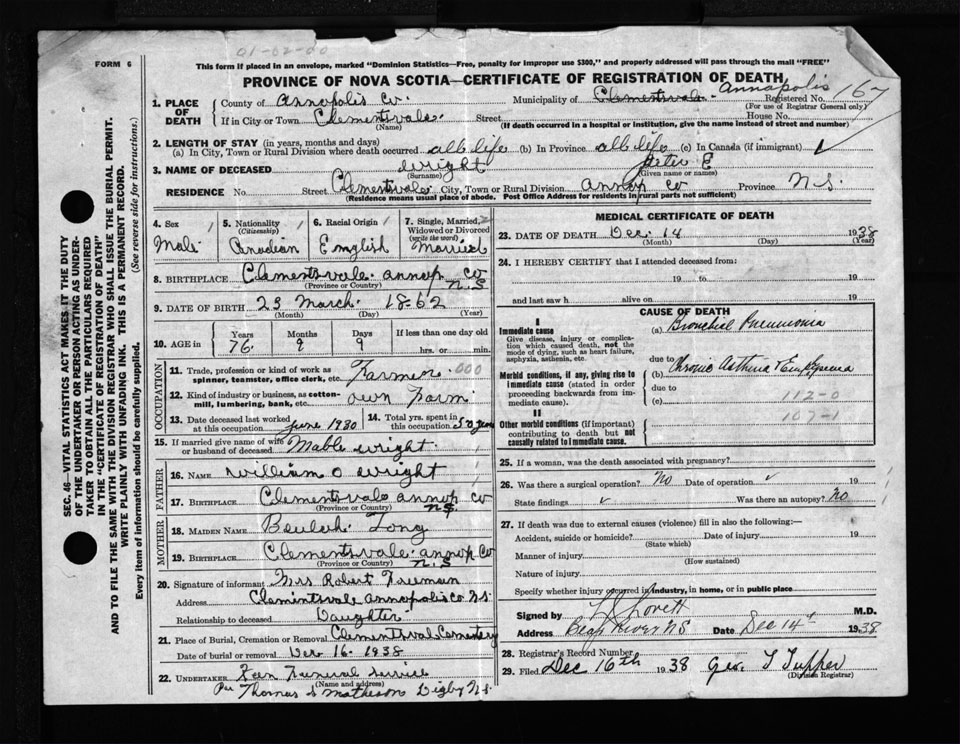 01-02-00
FORM 6
This form if placed in an envelope, marked "Dominion Statistics—Free, penalty for improper use $300," and properly addressed will pass through the mail "FREE"
PROVINCE OF NOVA SCOTIA—CERTIFICATE OF REGISTRATION OF DEATH
SEC. 46—VITAL STATISTICS ACT MAKES IT THE DUTY
OF THE UNDERTAKER OR PERSON ACTING AS UNDER-
TAKER TO OBTAIN ALL THE PARTICULARS REQUIRED
IN THE "CERTIFICATE OF REGISTRATION OF DEATH"
AND TO FILE THE SAME WITH THE DIVISION REGISTRAR WHO SHALL ISSUE THE BURIAL PERMIT.
WRITE PLAINLY WITH UNFADING INK. THIS IS A PERMANENT RECORD.
Every item of information should be carefully supplied. (See reverse side for instructions.)
1. PLACE OF DEATH County of Annapolis Co. Municipality of Clementsvale Annapolis Registered No. 167
(For use of Registrar General only)
If in City or Town Clementsvale Street House No.
(Name) (If death occurred in a hospital or institution, give the name instead of street and number)
2. LENGTH OF STAY (in years, months and days)
(a) In City, Town or Rural Division where death occurred all life (b) In Province all life (c) In Canada (if immigrant) ✓
3. NAME OF DECEASED Wright Peter E
(Surname) (Given name or names)
RESIDENCE No. Street Clementsvale City, Town or Rural Division Annap Co Province N.S.
(Residence means usual place of abode. Post Office Address for residents in rural parts not sufficient)
4. Sex Male
5. Nationality (Citizenship) Canadian
6. Racial Origin English
7. Single, Married, Widowed or Divorced (write the word) Married
8. BIRTHPLACE Clementsvale Annap Co N.S
(Province or Country)
9. DATE OF BIRTH 23 March 1862
(Month) (Day) (Year)
10. AGE in Years 76 Months 9 Days 9 If less than one day old hrs. or min.
OCCUPATION
11. Trade, profession or kind of work as spinner, teamster, office clerk, etc. Farmer 000
12. Kind of industry or business, as cotton-mill, lumbering, bank, etc. own Farm
13. Date deceased last worked at this occupation June 1930 14. Total yrs. spent in this occupation 50 years
15. If married give name of wife or husband of deceased Mable Wright
FATHER
16. NAME William O Wright
17. BIRTHPLACE Clementsvale Annap Co N.S.
(Province or Country)
MOTHER
18. MAIDEN NAME Beulah Long
19. BIRTHPLACE Clementsvale Annap Co N.S
(Province or Country)
20. Signature of informant Mrs Robert Freeman
Address Clemintsvale Annapolis Co N.S.
Relationship to deceased Daughter
21. Place of Burial, Cremation or Removal Clementsval Cemetery
Date of burial or removal Dec 16. 1938
22. UNDERTAKER Funeral Service
(Name and address)
Per Thomas S Matheson Digby N.S.
MEDICAL CERTIFICATE OF DEATH
23. DATE OF DEATH Dec. 14 1938
(Month) (Day) (Year)
24. I HEREBY CERTIFY that I attended deceased from:
19 to 19
and last saw h alive on 19
CAUSE OF DEATH
I
Immediate cause
Give disease, injury or complication which caused death, not the mode of dying, such as heart failure, asphyxia, asthenia, etc.
(a) Bronchial Pneumonia
due to
Morbid conditions, if any, giving rise to immediate cause (stated in order proceeding backwards from immediate cause).
(b) Chronic Asthma & Emphysema
due to 112-0
(c) 107-1
II
Other morbid conditions (if important) contributing to death but not causally related to immediate cause.
25. If a woman, was the death associated with pregnancy?
26. Was there a surgical operation? No Date of operation ✓ 19
State findings ✓ Was there an autopsy? No
27. If death was due to external causes (violence) fill in also the following:—
Accident, suicide or homicide? Date of injury 19
(State which)
Manner of injury
(How sustained)
Nature of injury
Specify whether injury occurred in industry, in home, or in public place
Signed by Lovett M.D.
Address Bear River NS Date Dec 14 1938.
28. Registrar's Record Number
29. Filed Dec 16th 1938 Geo. T Tupper
(Division Registrar)